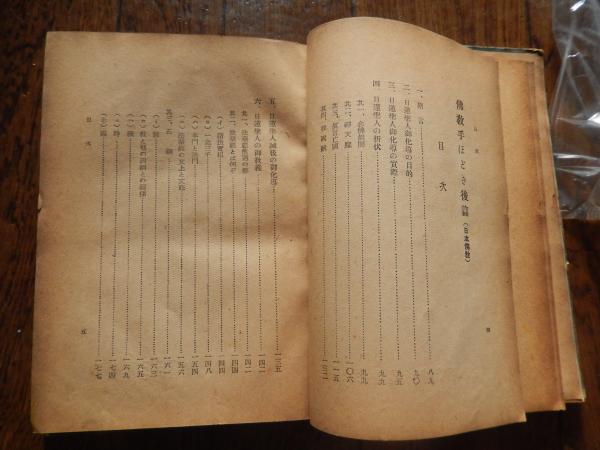 目次
佛教手ほどき後篇（日本佛教）
目次
一、緒言……八九
二、日蓮聖人御化導の目的……九〇
三、日蓮聖人御化導の實際……九五
四、日蓮聖人の折伏……九九
其一、念佛無間……九九
其二、禪天魔……一〇六
其三、眞言亡國……一一五
其四、律國賊……一三一
四
五、日蓮聖人滅後の御化導……一三五
六、日蓮聖人の御教義……一四二
其一、……一四二
其二、法華經とは何ぞ……一四四
（イ）……一四四
（ロ）一念三千……一四八
（ハ）本門と迹門……一五四
（ニ）法華經の文上と文底……一五六
其三、五綱……一六一
（イ）教……一六三
（ロ）教と機の前後との關係……一六五
（ハ）機……一六九
（ニ）時……一七四
（ホ）國……一七七
目次
五